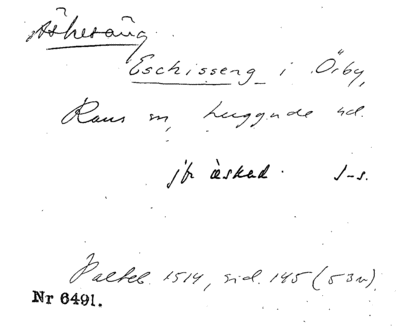 Äskesäng
Eschisseng i Örby,
Raus sn, Luggude hd.
jfr äskad. s-s.
Palteb. 1514, sid. 145 (53v)
Nr 6491.